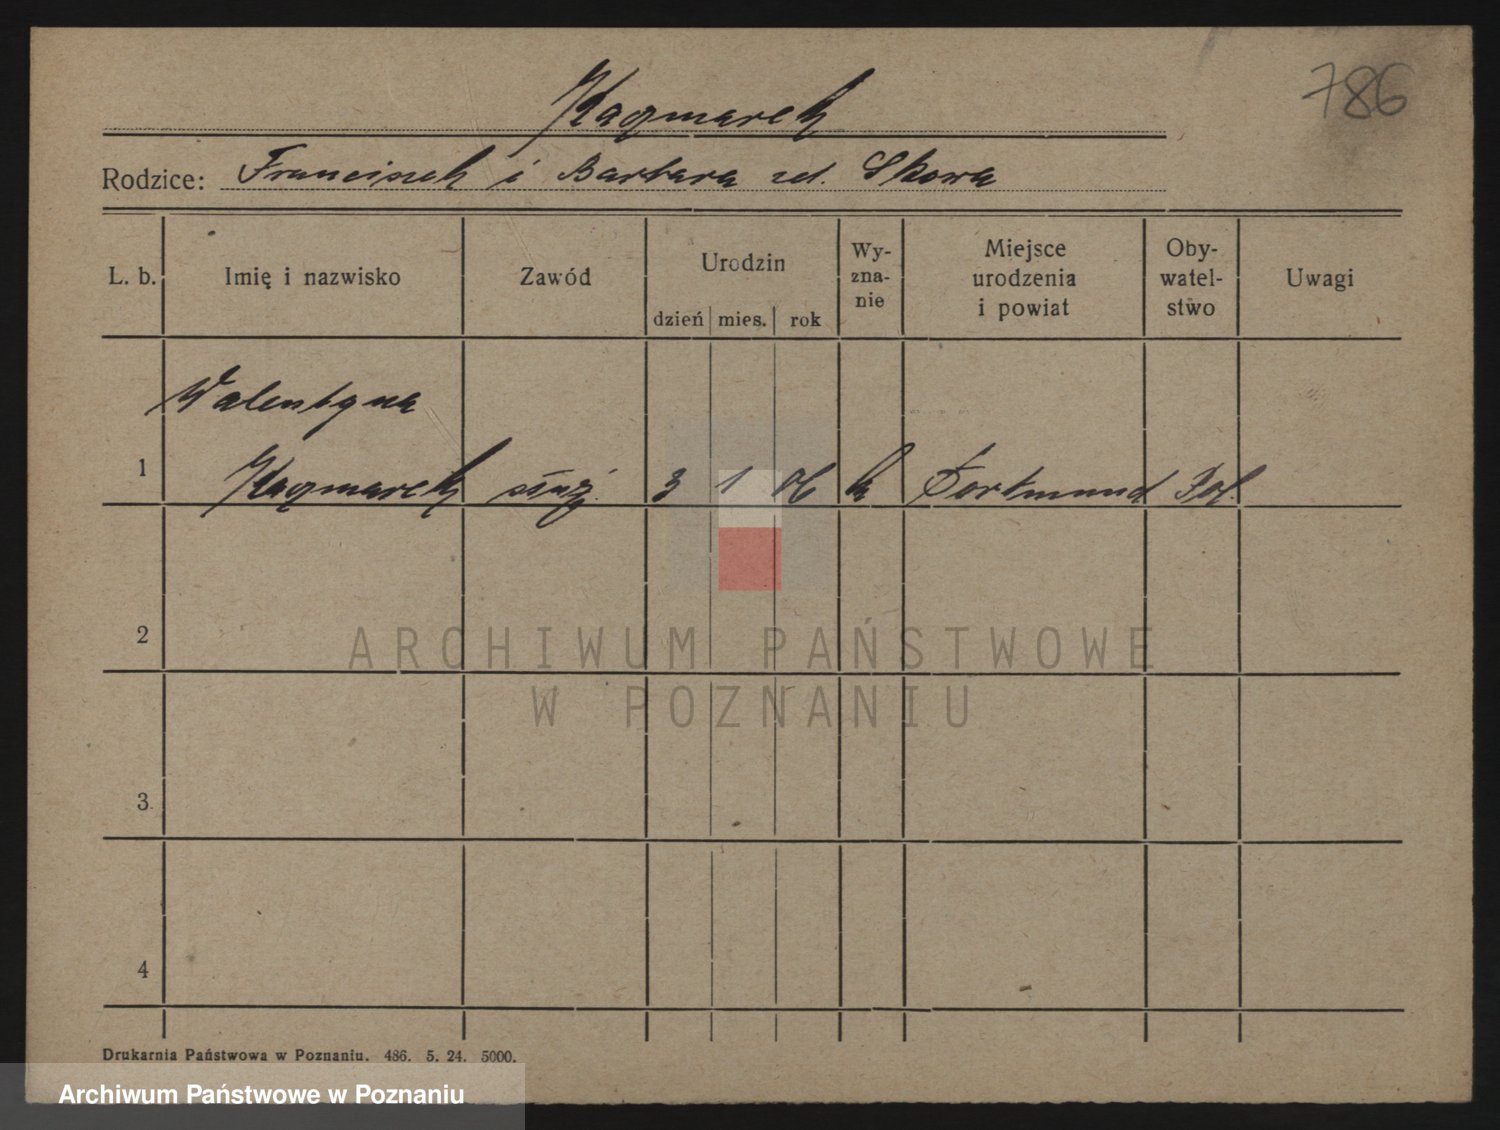 786
Kaczmarek
Rodzice: Franciszek i Barbara zd. Skowa
L. b. Imię i nazwisko Zawód Urodzin dzień mies. rok Wy-zna-nie Miejsce urodzenia i powiat Oby-watel-stwo Uwagi
Walentyna
1 Kaczmarek służ. 3 1 06 k Dortmund Pol.
2
ARCHIWUM PAŃSTWOWE
W POZNANIU
3.
4
Drukarnia Państwowa w Poznaniu. 486. 5. 24. 5000.
Archiwum Państwowe w Poznaniu